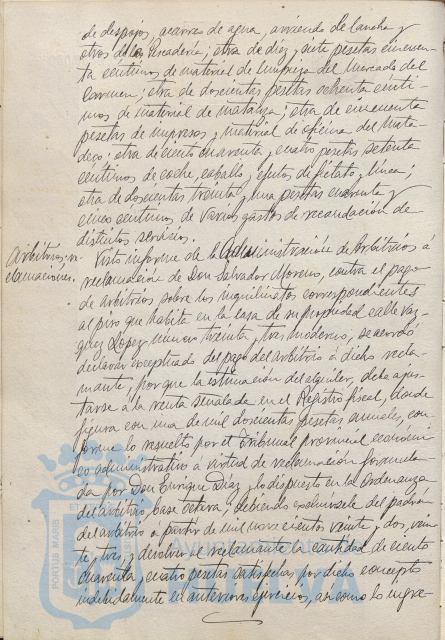 de despojos, acarreo de agua, arriendo de lancha y
otros de la Pescadería; otra de diez y siete pesetas cincuen-
ta céntimos de material de limpieza del Mercado del
Carmen; otra de doscientas pesetas ochenta cénti-
mos de material de matanza; otra de cincuenta
pesetas de impresos y material de oficina del Mata-
dero; otra de ciento cuarenta y cuatro pesetas setenta
céntimos de coche, caballo, efectos de fielato y línea;
otra de doscientas treinta y una pesetas cuarenta y
cinco céntimos de varios gastos de recaudación de
distintos servicios.
Arbitrios: re-
clamaciones.
Visto informe de la Administración de Arbitrios a
reclamación de Don Salvador Moreno, contra el pago
de arbitrios sobre los inquilinatos correspondientes
al piso que habita en la casa de su propiedad calle Vaz-
quez Lopez número treinta y tres moderno, se acordó
declarar exceptuado del pago del arbitrio a dicho recla-
mante, porque la estimación del alquiler, debe ajus-
tarse a la renta señalada en el Registro fiscal, donde
figura con una de mil doscientas pesetas anuales, con-
forme lo resuelto por el Tribunal provincial económi-
co administrativo a virtud de reclamación formula-
da por Don Enrique Diaz y lo dispuesto en la Ordenanza
del arbitrio base octava; debiendo excluirsele del padrón
del arbitrio a partir de mil nove ciento veinte y dos, vein-
te y tres y devolver al reclamante la cantidad de ciento
cuarenta y cuatro pesetas satisfechas por dicho concepto
indebidamente en anteriores ejercicios, así como lo ingre-
PORTUS MARIS